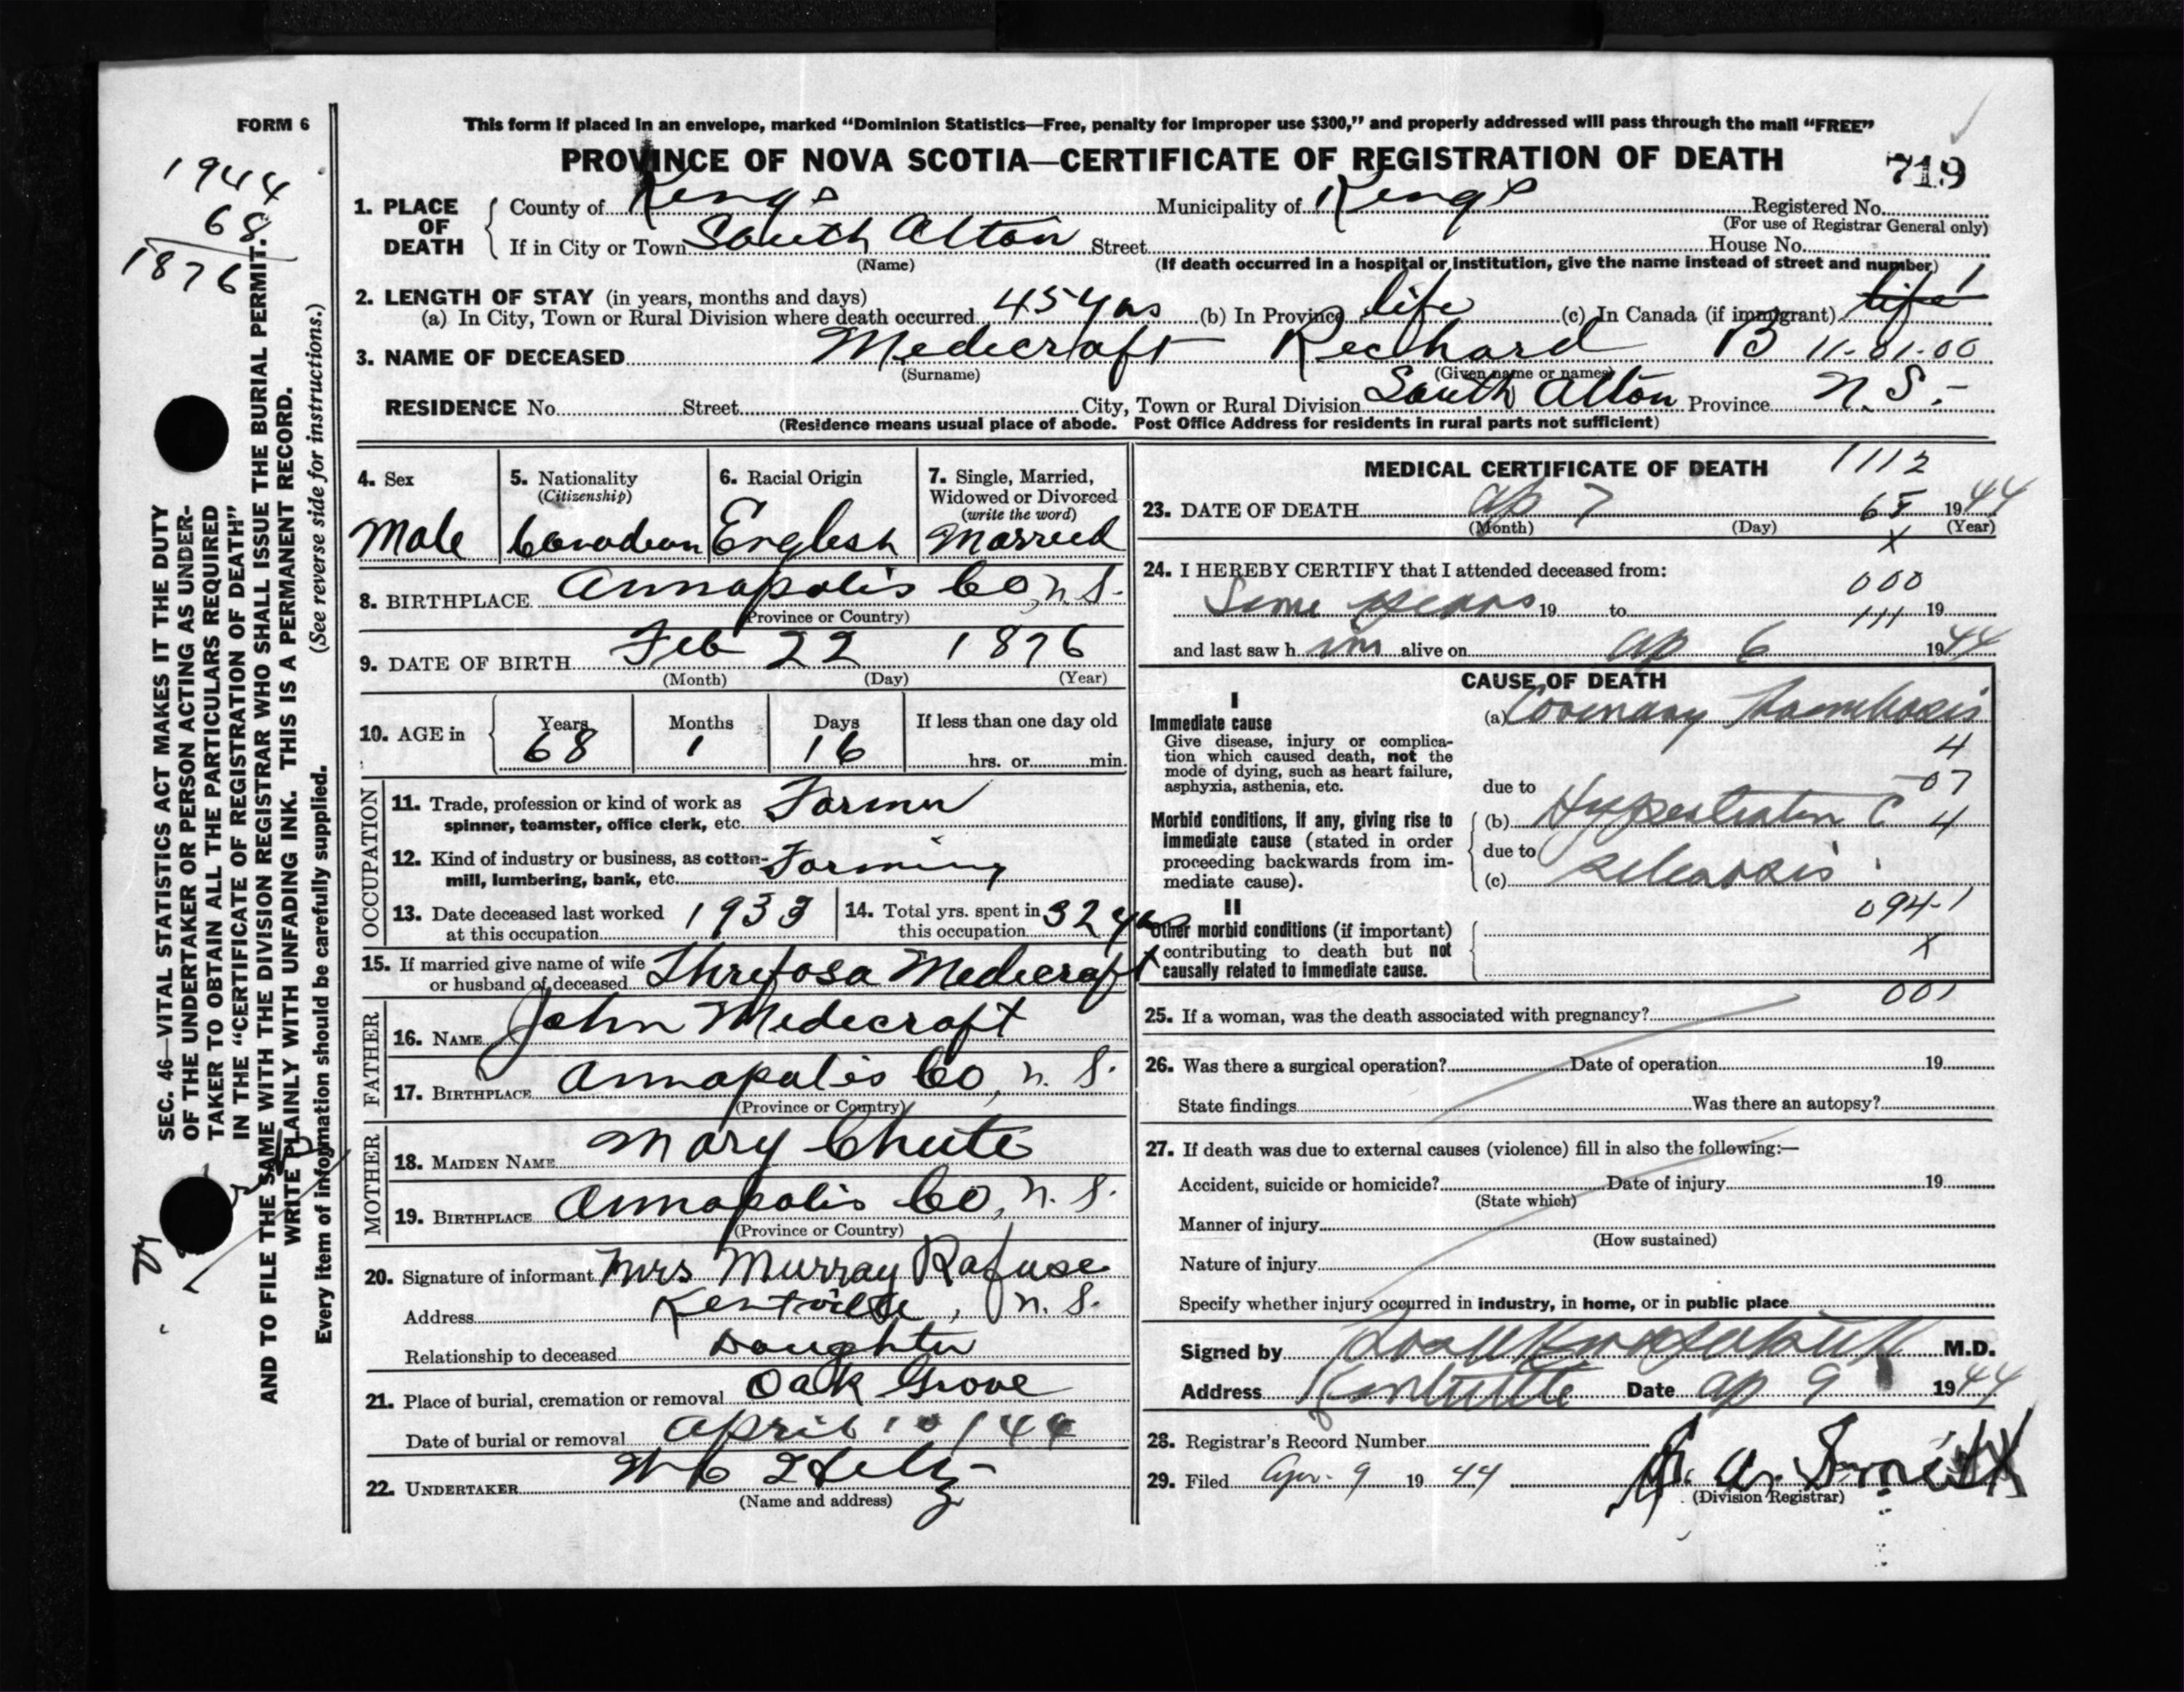 FORM 6
This form if placed in an envelope, marked “Dominion Statistics—Free, penalty for improper use $300,” and properly addressed will pass through the mail “FREE”
PROVINCE OF NOVA SCOTIA—CERTIFICATE OF REGISTRATION OF DEATH 719
1944
68
1876
1. PLACE OF DEATH { County of Kings Municipality of Kings Registered No.
(For use of Registrar General only)
If in City or Town South Alton Street House No.
(Name) (If death occurred in a hospital or institution, give the name instead of street and number)
2. LENGTH OF STAY (in years, months and days)
(a) In City, Town or Rural Division where death occurred 45 yrs (b) In Province life (c) In Canada (if immigrant) life
3. NAME OF DECEASED Medicraft Richard B 11-01-00
(Surname) (Given name or names)
RESIDENCE No. Street City, Town or Rural Division South Alton Province N. S.-
(Residence means usual place of abode. Post Office Address for residents in rural parts not sufficient)
4. Sex 5. Nationality (Citizenship) 6. Racial Origin 7. Single, Married, Widowed or Divorced (write the word)
Male Canadian English Married
8. BIRTHPLACE Annapolis Co, N. S.
(Province or Country)
9. DATE OF BIRTH Feb 22 1876
(Month) (Day) (Year)
10. AGE in { Years Months Days If less than one day old
68 1 16 hrs. or min.
OCCUPATION
11. Trade, profession or kind of work as spinner, teamster, office clerk, etc. Farmer
12. Kind of industry or business, as cotton-mill, lumbering, bank, etc. Farming
13. Date deceased last worked at this occupation 1933 14. Total yrs. spent in this occupation 32 yrs
15. If married give name of wife or husband of deceased Medicraft
FATHER
16. NAME John Medicraft
17. BIRTHPLACE Annapolis Co, N. S.
(Province or Country)
MOTHER
18. MAIDEN NAME Mary Chute
19. BIRTHPLACE Annapolis Co, N. S.
(Province or Country)
20. Signature of informant Mrs Murray Rafuse
Address Kentville, N. S.
Relationship to deceased Daughter
21. Place of burial, cremation or removal Oak Grove
Date of burial or removal April 10 / 44
22. UNDERTAKER
(Name and address)
MEDICAL CERTIFICATE OF DEATH 1112
23. DATE OF DEATH Ap 7 68 1944
(Month) (Day) (Year)
X
24. I HEREBY CERTIFY that I attended deceased from: 000
Some years 19 to 111 19
and last saw him alive on Ap 6 1944
CAUSE OF DEATH
I
Immediate cause
Give disease, injury or complication which caused death, not the mode of dying, such as heart failure, asphyxia, asthenia, etc.
(a) Coronary Thrombosis
4
07
due to
Morbid conditions, if any, giving rise to immediate cause (stated in order proceeding backwards from immediate cause).
(b) Hypertension C 4
due to
(c) sclerosis
II 094-1
Other morbid conditions (if important) contributing to death but not causally related to immediate cause.
X
001
25. If a woman, was the death associated with pregnancy?
26. Was there a surgical operation? Date of operation 19
State findings Was there an autopsy?
27. If death was due to external causes (violence) fill in also the following:—
Accident, suicide or homicide? Date of injury 19
(State which)
Manner of injury
(How sustained)
Nature of injury
Specify whether injury occurred in industry, in home, or in public place
Signed by M.D.
Address Kentville Date Ap 9 1944
28. Registrar's Record Number
29. Filed Apr. 9 1944 A. Smith
(Division Registrar)
SEC. 46—VITAL STATISTICS ACT MAKES IT THE DUTY
OF THE UNDERTAKER OR PERSON ACTING AS UNDER-
TAKER TO OBTAIN ALL THE PARTICULARS REQUIRED
IN THE “CERTIFICATE OF REGISTRATION OF DEATH”
AND TO FILE THE SAME WITH THE DIVISION REGISTRAR WHO SHALL ISSUE THE BURIAL PERMIT.
WRITE PLAINLY WITH UNFADING INK. THIS IS A PERMANENT RECORD.
Every item of information should be carefully supplied. (See reverse side for instructions.)